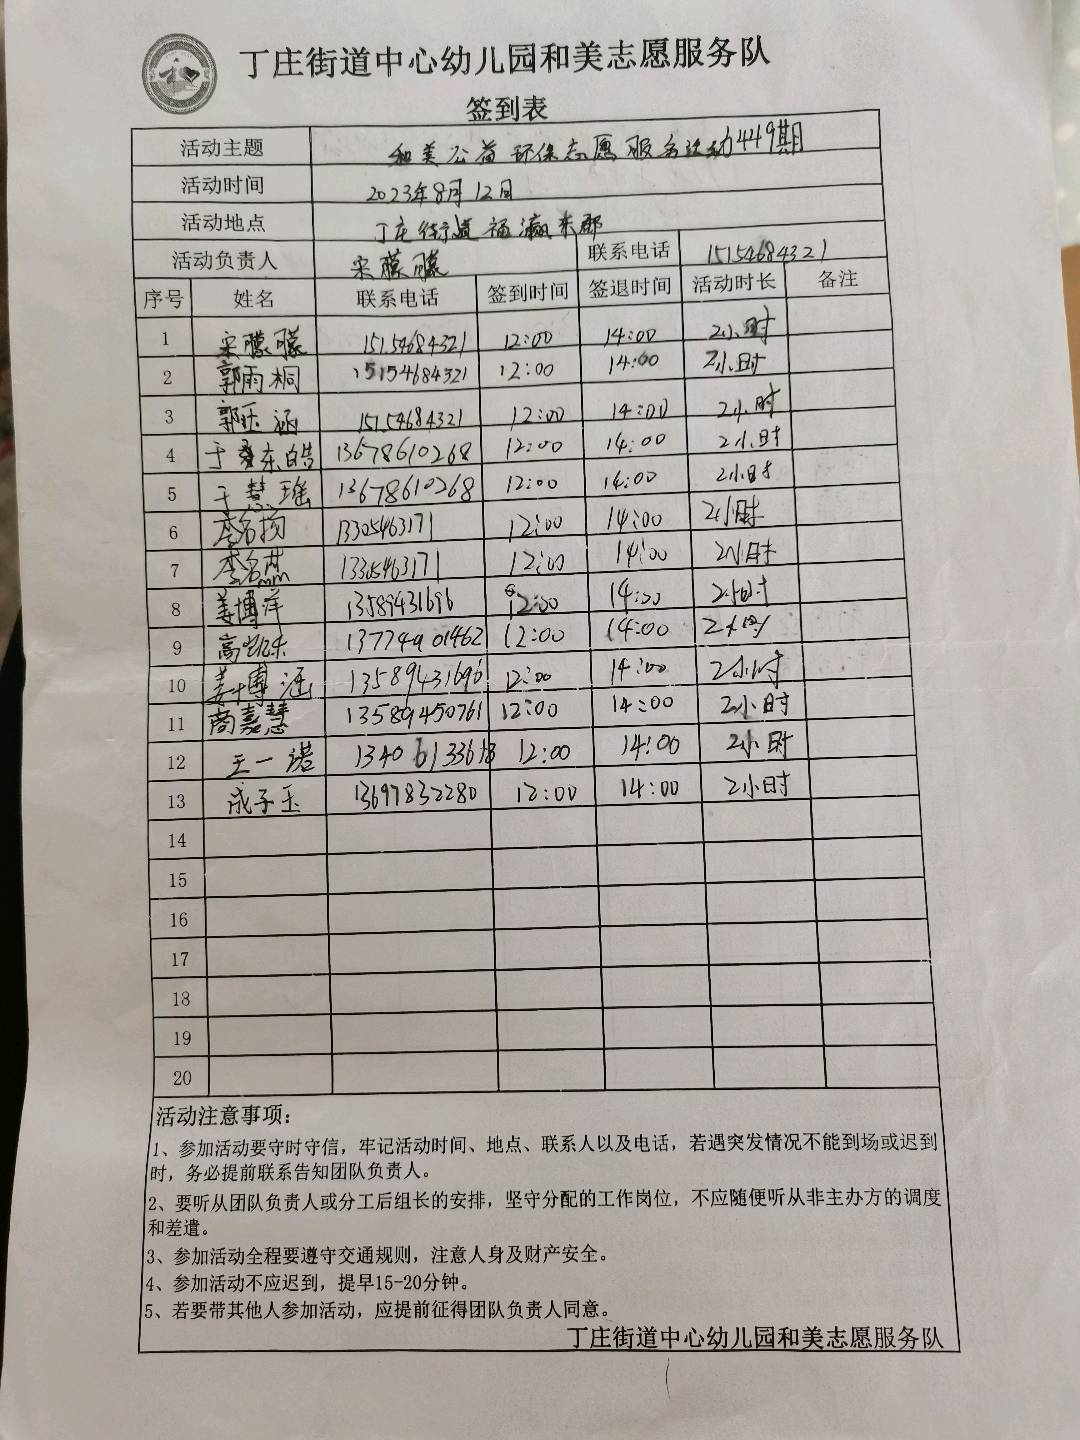 丁庄街道中心幼儿园和美志愿服务队
签到表
活动主题 和美公益环保志愿服务活动449期
活动时间 2023年8月12日
活动地点 丁庄街道福瀛东郡
活动负责人 宋朦朦 联系电话 15154684321
序号 姓名 联系电话 签到时间 签退时间 活动时长 备注
1 宋朦朦 15154684321 12:00 14:00 2小时
2 郭雨桐 15154684321 12:00 14:00 2小时
3 郭玉涵 15154684321 12:00 14:00 2小时
4 于东皓 13678610268 12:00 14:00 2小时
5 于慧瑶 13678610268 12:00 14:00 2小时
6 李名扬 13305463171 12:00 14:00 2小时
7 李名 13305463171 12:00 14:00 2小时
8 姜博洋 13589431696 12:00 14:00 2小时
9 高凯乐 13774901462 12:00 14:00 2小时
10 姜博涵 13589431696 12:00 14:00 2小时
11 商嘉慧 13589450761 12:00 14:00 2小时
12 王一诺 12:00 14:00 2小时
13 成子玉 13697832280 12:00 14:00 2小时
14
15
16
17
18
19
20
活动注意事项：
1、参加活动要守时守信，牢记活动时间、地点、联系人以及电话，若遇突发情况不能到场或迟到
时，务必提前联系告知团队负责人。
2、要听从团队负责人或分工后组长的安排，坚守分配的工作岗位，不应随便听从非主办方的调度
和差遣。
3、参加活动全程要遵守交通规则，注意人身及财产安全。
4、参加活动不应迟到，提早15-20分钟。
5、若要带其他人参加活动，应提前征得团队负责人同意。
丁庄街道中心幼儿园和美志愿服务队